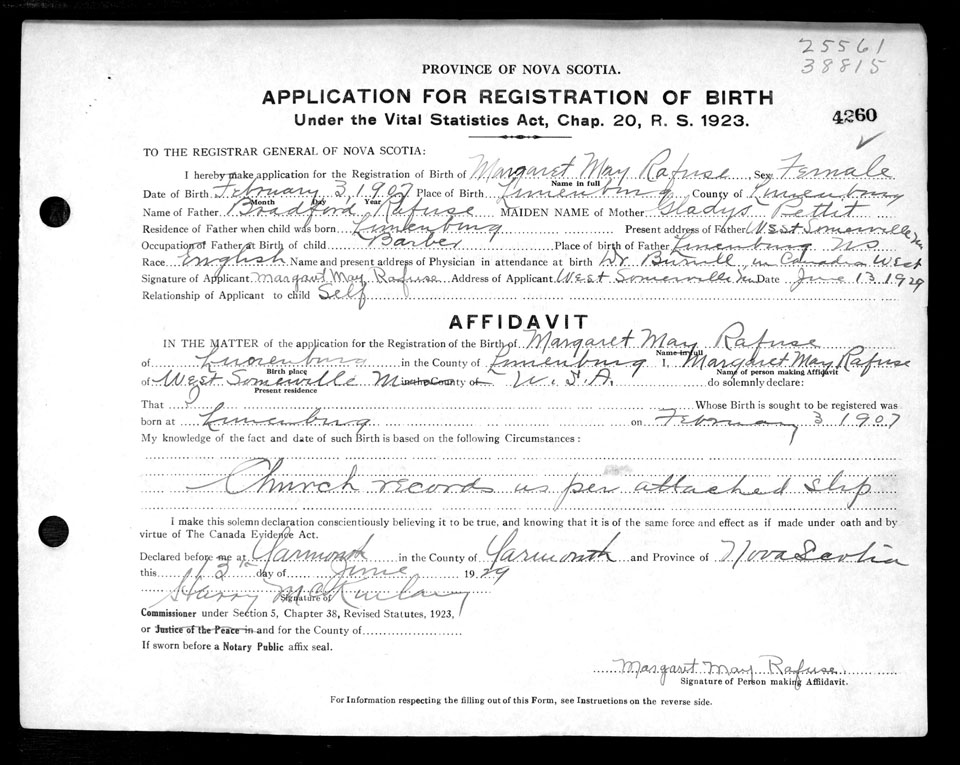 25561
38815
PROVINCE OF NOVA SCOTIA.
APPLICATION FOR REGISTRATION OF BIRTH
Under the Vital Statistics Act, Chap. 20, R. S. 1923.
4260
TO THE REGISTRAR GENERAL OF NOVA SCOTIA:
I hereby make application for the Registration of Birth of Margaret May Rafuse Sex Female
Name in full
Date of Birth February 3, 1907 Place of Birth Lunenburg County of Lunenburg
Month Day Year
Name of Father Bradford Rafuse MAIDEN NAME of Mother Gladys Pettit
Residence of Father when child was born Lunenburg Present address of Father West Somerville
Occupation of Father at Birth of child Barber Place of birth of Father Lunenburg NS
Race English Name and present address of Physician in attendance at birth Dr. Burrell, in Canadian West
Signature of Applicant Margaret May Rafuse Address of Applicant West Somerville Date June 13 1929
Relationship of Applicant to child Self
AFFIDAVIT
IN THE MATTER of the application for the Registration of the Birth of Margaret May Rafuse
Name in full
of Lunenburg in the County of Lunenburg I, Margaret May Rafuse
Birth place Name of person making Affidavit
of West Somerville M in the County of U.S.A. do solemnly declare:
Present residence
That I Whose Birth is sought to be registered was
born at Lunenburg on February 3 1907
My knowledge of the fact and date of such Birth is based on the following Circumstances:
Church records as per attached slip
I make this solemn declaration conscientiously believing it to be true, and knowing that it is of the same force and effect as if made under oath and by
virtue of The Canada Evidence Act.
Declared before me at Yarmouth in the County of Yarmouth and Province of Nova Scotia
this 13th day of June 1929
Harry McKinlay
Signature of
Commissioner under Section 5, Chapter 38, Revised Statutes, 1923,
or Justice of the Peace in and for the County of
If sworn before a Notary Public affix seal.
Margaret May Rafuse
Signature of Person making Affidavit.
For Information respecting the filling out of this Form, see Instructions on the reverse side.